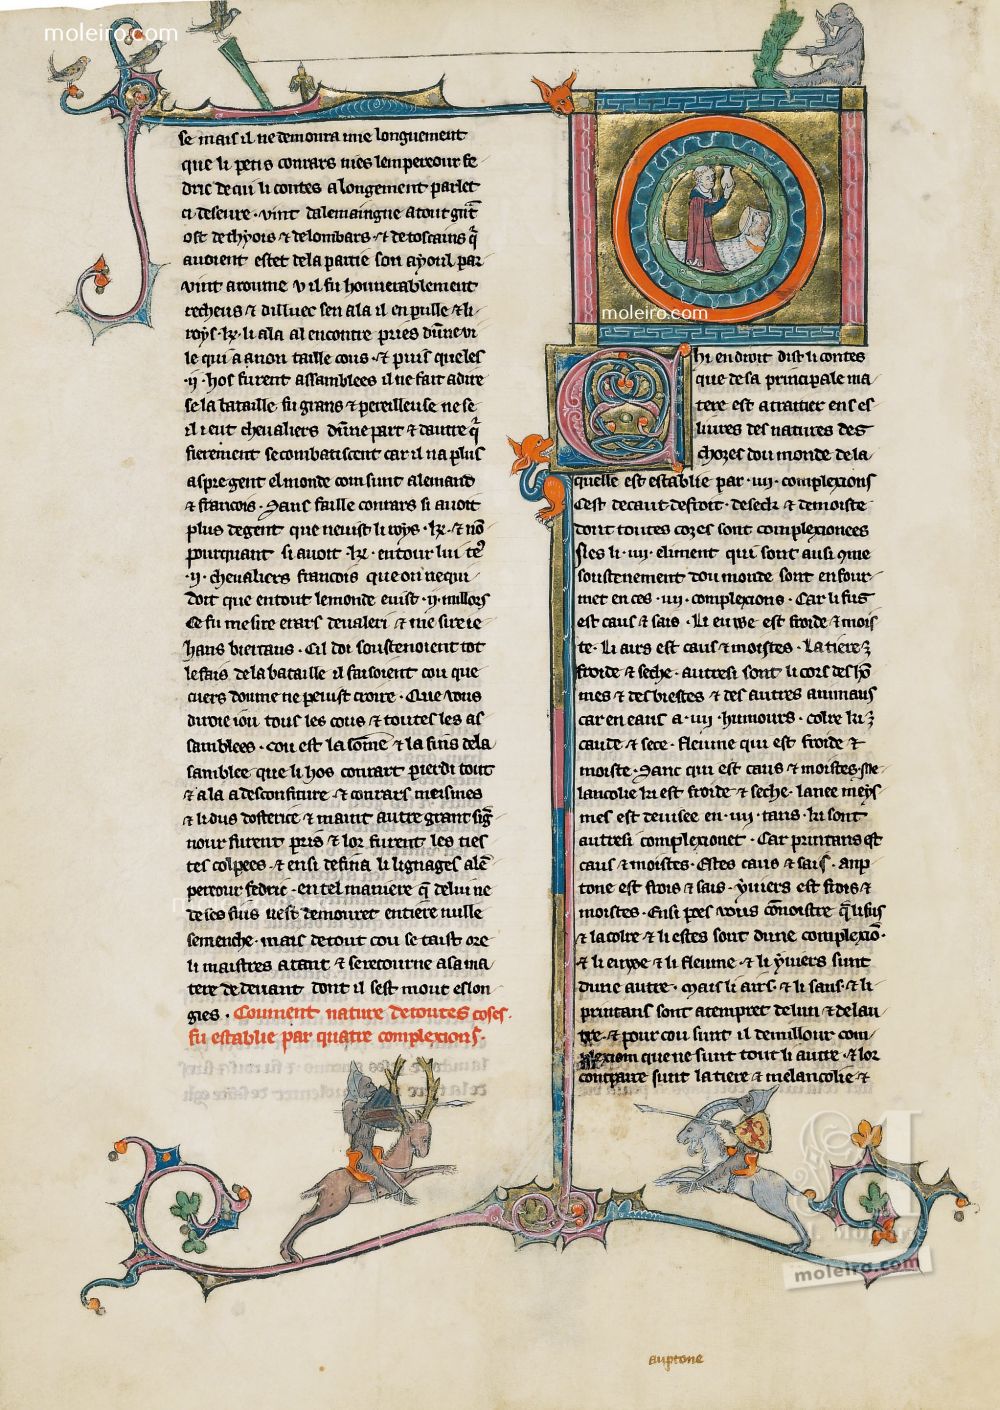 moleiro.com
se mais il ne demoura mie longuement
que li petis conrars nies lempereour fe
dric de qui li contes a longement parlet
ci deseure · vint dalemaingne a tout grãt
ost de thyois ⁊ de lombars · ⁊ de toscains q̃
auoient estet de la partie son ayoul par
vint a roume v il fu hounerablement
recheus ⁊ dilluec sen ala il en puille ⁊ li
roys · k̃ · li ala al encontre pries dũne vi
le qui a a non taille cous · ⁊ puis que les
·ij· hos furent assamblees il ne fait a dire
se la bataille fu grans ⁊ pereilleuse ne se
il i eut cheualiers dũne part ⁊ dautre q̃
fierement se combatiscent car il na plus
aspre gent el monde com sunt alemãd
⁊ francois · Sans faille conrars si auoit
plus de gent que neuist li roys · k̃ · ⁊ nõ
pourquant si auoit · k̃ · entour lui te᷒
·ij· cheualiers francois que on ne qui
doit que en tout le monde euist · ij · millors
Ce fu mesire erars de ualeri ⁊ me sire ie
hans biertaus · Cil doi soustenoient tot
le fais de la bataille il faisoient cou que
cuers doume ne peuist croire · Que vous
diroie iou tous les cous ⁊ toutes les as
samblees · cou est la sõme ⁊ la fins de la
samblee que li hos conrart pierdi tout
⁊ ala a desconfiture · ⁊ conrars meismes
⁊ li dus dosterice ⁊ maint autre grant sig̃
nour furent pris ⁊ lor furent les ties
tes colpees · ⁊ ensi defina li lignages alẽ
pereour fedric · en tel maniere q̃ de lui ne
de ses fius nest demouret entiere nulle
semenche · mais de tout cou se taist ore
li maistres a tant ⁊ se retourne a sa ma
tere de deuant dont il sest mout eslon
gies · Coument nature de toutes coses ·
fu establie par quatre complexions ·
moleiro.com
Chi endroit dist li contes
que de sa principale ma
tere est a traitier en ses
liures des natures des
chozes dou monde de la
quelle est establie par · iiij · complexions
Cest de caut de froit · de seck ⁊ de moiste
dont toutes cozes sont complexionees
Nes li · iiij · eliment qui sont ausi que
soustenement dou monde sont enfour
met en ces · iiij · complexions · Car li fus
est caus ⁊ sais · Li euwe est froide ⁊ mois
te · Li airs est caus ⁊ moistes · La tiere ꝫ
froide ⁊ seche · autresi sont li cors des hõ
mes ⁊ des biestes ⁊ des autres animaus
car en eaus a · iiij · humours · colre ki ꝫ
caude ⁊ sece · fleume qui est froide ⁊
moiste · Sanc qui est caus ⁊ moistes · Me
lancolie ki est froide ⁊ seche · lanee meys
mes est deuisee en · iiij · tans · ki sont
autresi complexionet · Car printans est
caus ⁊ moistes · Estes caus ⁊ sais · aup
tone est frois ⁊ sais · yuiers est frois ⁊
moistes · Ensi poes vous cõnoistre q̃ li fus
⁊ la colre ⁊ li estes sont dune complexiõ ·
⁊ li euwe ⁊ li fleume · ⁊ li yuiers sunt
dune autre · mais li airs · ⁊ li sans · ⁊ li
printans sont atempret de lun ⁊ de lau
tre · ⁊ pour cou sunt il de millour com
plexiom que ne sunt tout li autre · ⁊ lor
contraire sunt la tiere ⁊ melancolie ⁊
M. Moleiro
moleiro.com
auptone